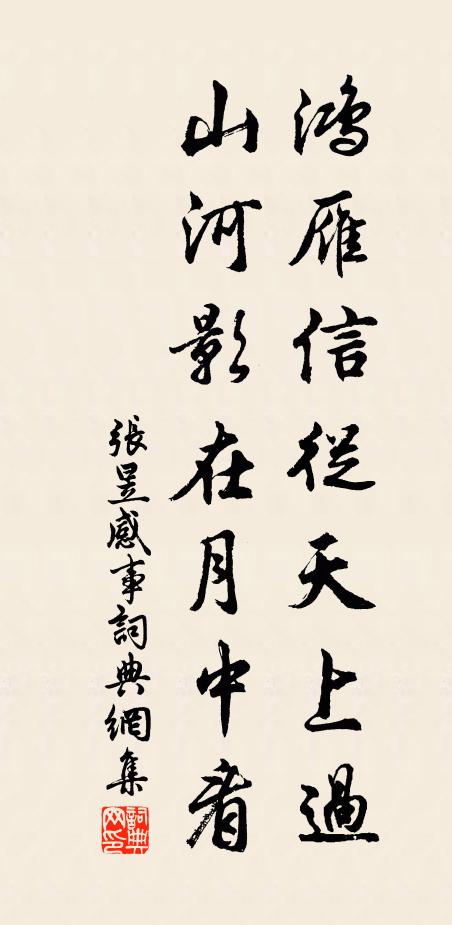 鴻雁信從天上過
山河影在月中看
張昱感事詞典網集
詞典
网印